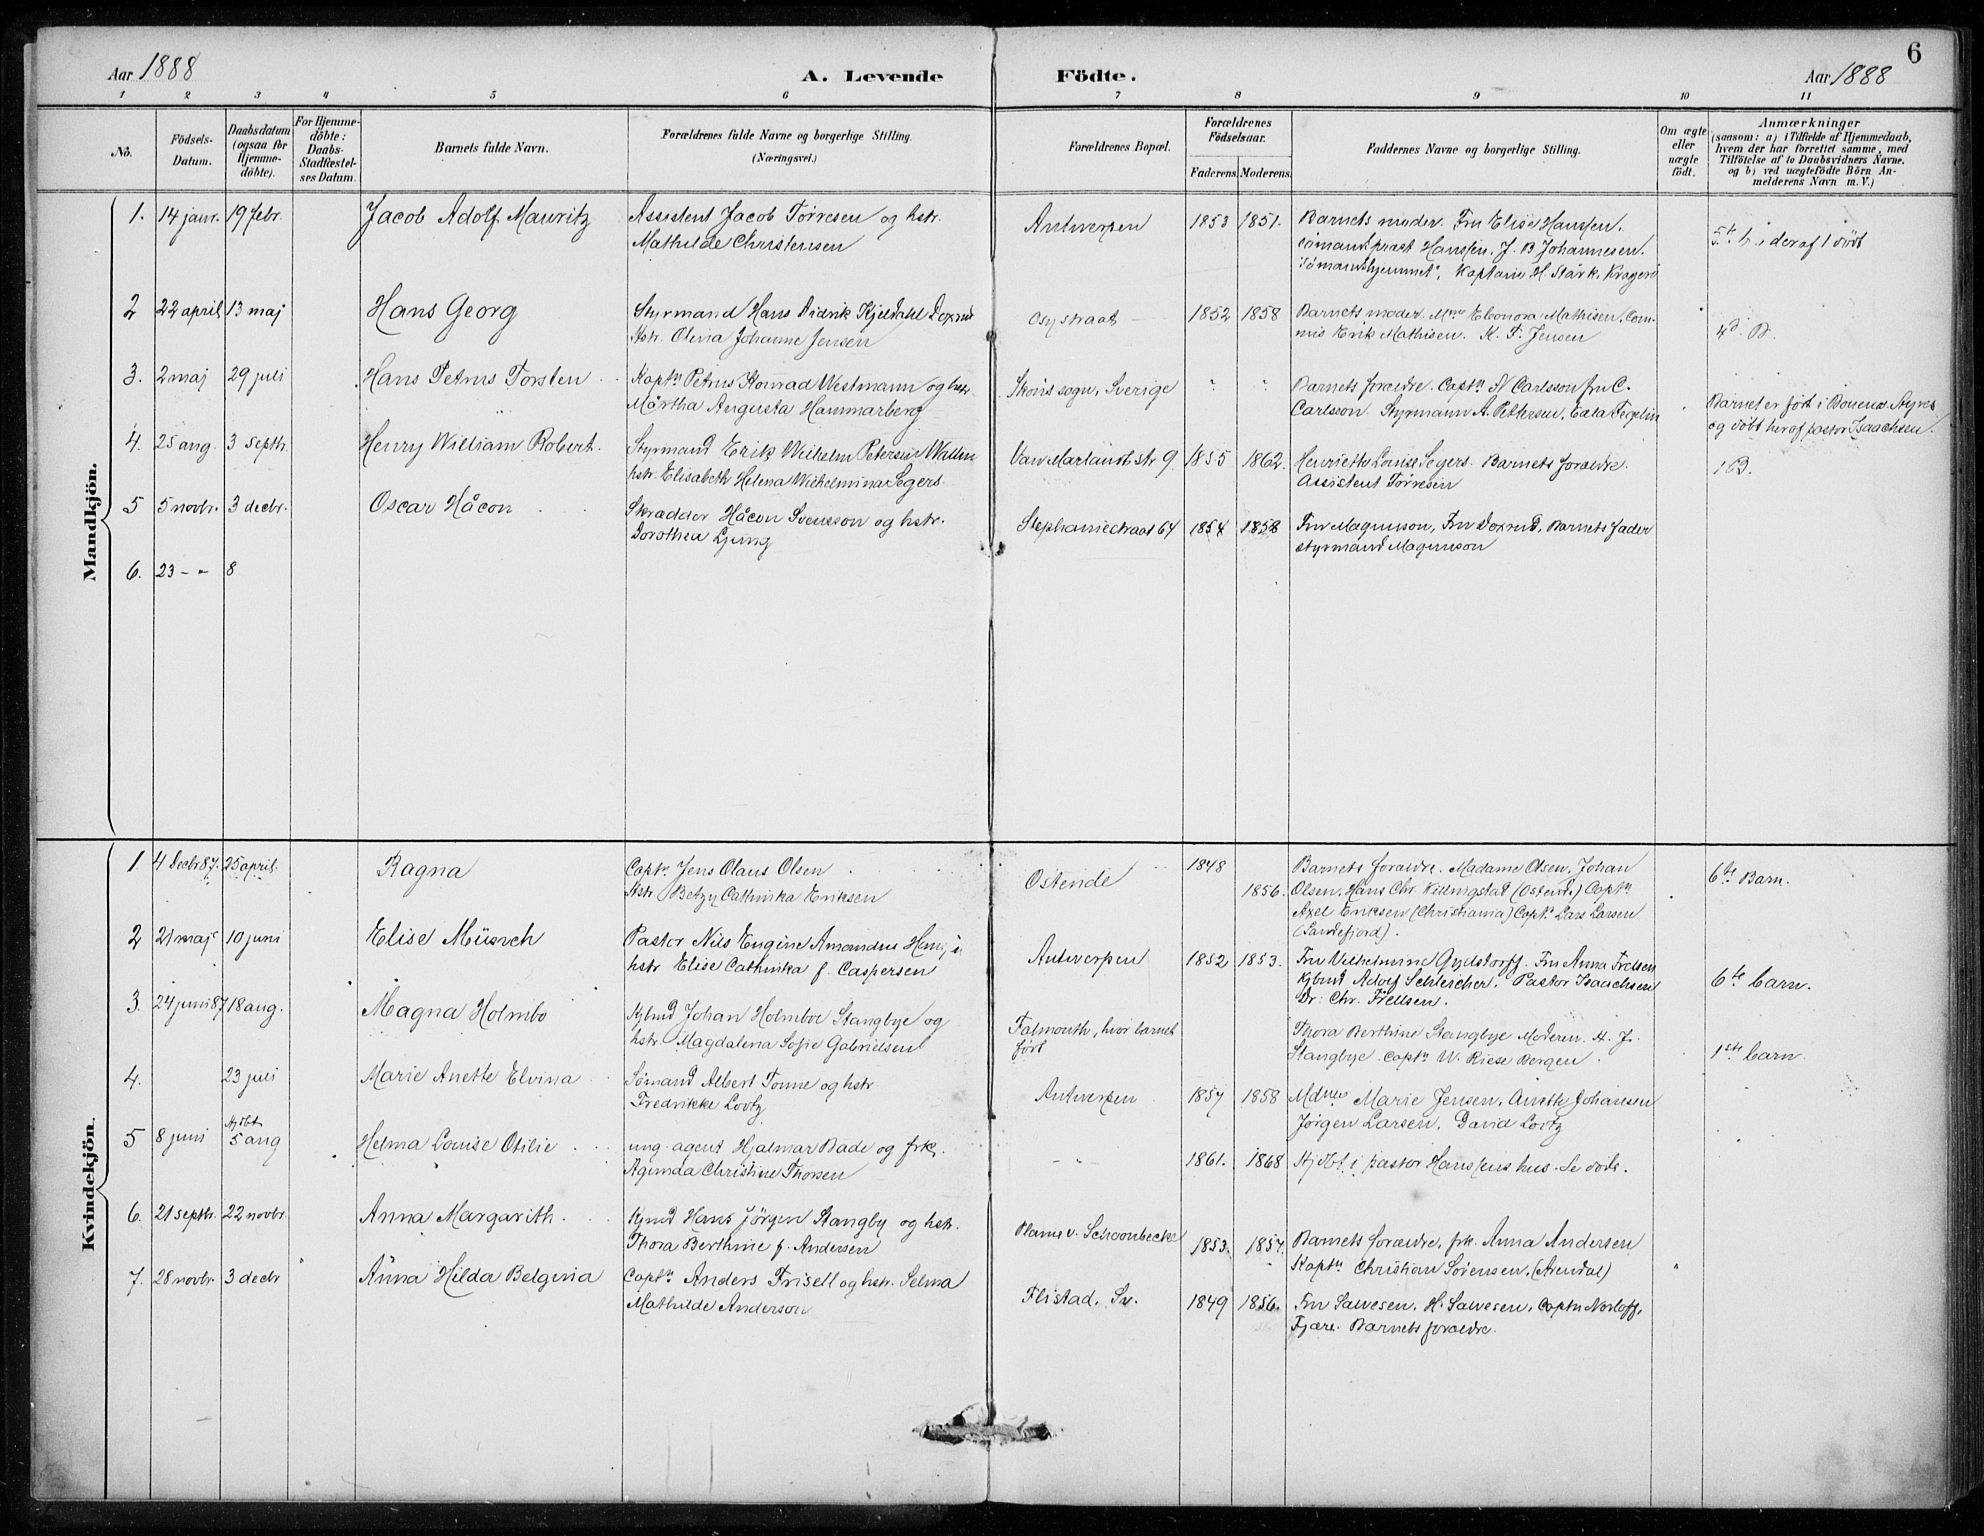 6
Aar 1888
A. Levende Födte.
Aar 1888
1 2 3 4 5 6 7 8 9 10 11
No.
Födsels-
Datum.
Daabsdatum
(ogsaa for
Hjemme-
döbte).
For Hjemme-
döbte:
Daabs-
Stadfæstel-
ses Datum.
Barnets fulde Navn.
Forældrenes fulde Navne og borgerlige Stilling.
(Næringsvei.)
Forældrenes Bopæl.
Forældrenes
Födselsaar.
Faderens. Moderens.
Faddernes Navne og borgerlige Stilling.
Om ægte
eller
uægte
födt.
Anmærkninger
(saasom: a) i Tilfælde af Hjemmedaab,
hvem der har forrettet samme, med
Tilföielse af to Daabsvidners Navne.
og b) ved uægtefödte Börn An-
melderens Navn m. V.)
Mandkjön.
1. 14 janr. 19 febr. Jacob Adolf Mauritz
Assistent Jacob Törresen og hstr.
Mathilde Christensen
Antwerpen 1853 1851.
Barnets moder. Fru Elise Hanssen.
sömandspræst Hanssen. J. B. Johannesen.
"Sömandshjemmet", Kaptain H. Stärk, Kragerö
5te b. i deraf 1 födt
2 22 april 13 maj Hans Georg
Styrmand Hans Didrik Kjeldahl Doxrud
Hstr. Olivia Johanne Jensen
Osystraat 1852 1858
Barnets moder. Mme Eleonora Mathisen, Com-
mis Erik Mathisen. K. F. Jensen
4d. B.
3. 2 maj 29 juli Hans Petrus Torsten
Kaptn Petrus Konrad Westmann og hstr
Märtha Augusta Hammarberg
Skons sogn, Sverige " "
Barnets forældre. Captn N Carlsson fru C.
Carlsson. Styrmann A. Pettersen, Eata Fegelin
Barnet er född i Buenos Ayres
og döbt her af pastor Isaachsen.
4 25 aug. 3 septr. Henry William Robert.
Styrmand Erik Wilhelm Petersen Wallen
hstr. Elisabeth Helena Wilhelmina Segers
Van Marlandt str 9 1855 1862.
Henriette Louise Segers. Barnets forældre.
Assistent Törresen
1 B.
5 5 novbr. 3 decbr. Oscar Håcon
Skrædder Håcon Svensson og hstr.
Dorothea Ljung
Stephaniestraat 64 1854 1858
Fru Magnuson, Fru Doxrud, Barnets fader
Styrmand Magnuson
6. 23 – " 8
Kvindekjön.
1 4 Decbr 87. 25 april. Ragna
Capt. Jens Olaus Olsen
Hstr. Betzy Cathinka Eriksen
Ostende 1848 1856.
Barnets forældre. Madame Olsen, Johan
Olsen, Hans Chr. Killingstad (Ostende) Captn
Axel Eriksen (Christiania) Captn Lars Larsen
(Sandefjord).
6te Barn.
2 21 maj 10 juni Elise Münch
Pastor Nils Eugine Amandus
hstr Elise Cathinka f. Caspersen
Antwerpen 1852 1853.
Fru Vilhelmine Gyldstorff. Fru Anna Frellsen
Kjbmd Adolf Schleicher. Pastor Isaachsen
Dr. Chr. Frellsen.
6te barn.
3. 24 juni 87 18 aug. Magna Holmbo
Kjbmd Johan Holmboe Stangbye og
hstr. Magdalena Sofie Gabrielsen
Falmouth, hvor barnet
födt
Thora Berthine Stangbye Moderen. H. J.
Stangbye. Captn W. Riese Bergen
1ste barn
4. 23 juli Marie Anette Elvina
Sömand Albert Tonne og hstr.
Fredrikke Lovtz
Antwerpen 1857 1858
Mdme Marie Jensen, Aneth Johansen
Jörgen Larsen, David Lovtz
5 8 juni Hjdbt 5 aug Helma Louise Otilie
ung. agent Hjalmar Bade og frk.
Agunda Christine Thorsen
– " – 1861. 1868
Hjdbt i pastor Hanssens hus. Se döde.
6. 21 septbr. 22 novbr. Anna Margarith.
Kjmd Hans Jörgen Stangby og hstr.
Thora Berthine f. Andersen
Plaine v. Schoonbecke 1853. 1857.
Barnets forældre, frk. Anna Andersen
Kaptn Christian Sörensen, (Arendal)
7. 28 novbr. 3 decbr Anna Hilda Belginia
Captn Anders Frisell og hstr. Selma
Mathilde Anderson
Flistad. Sv. 1849 1856.
Fru Salvesen. H. Salvesen. Captn Norloff,
Fjære. Barnets forældre.